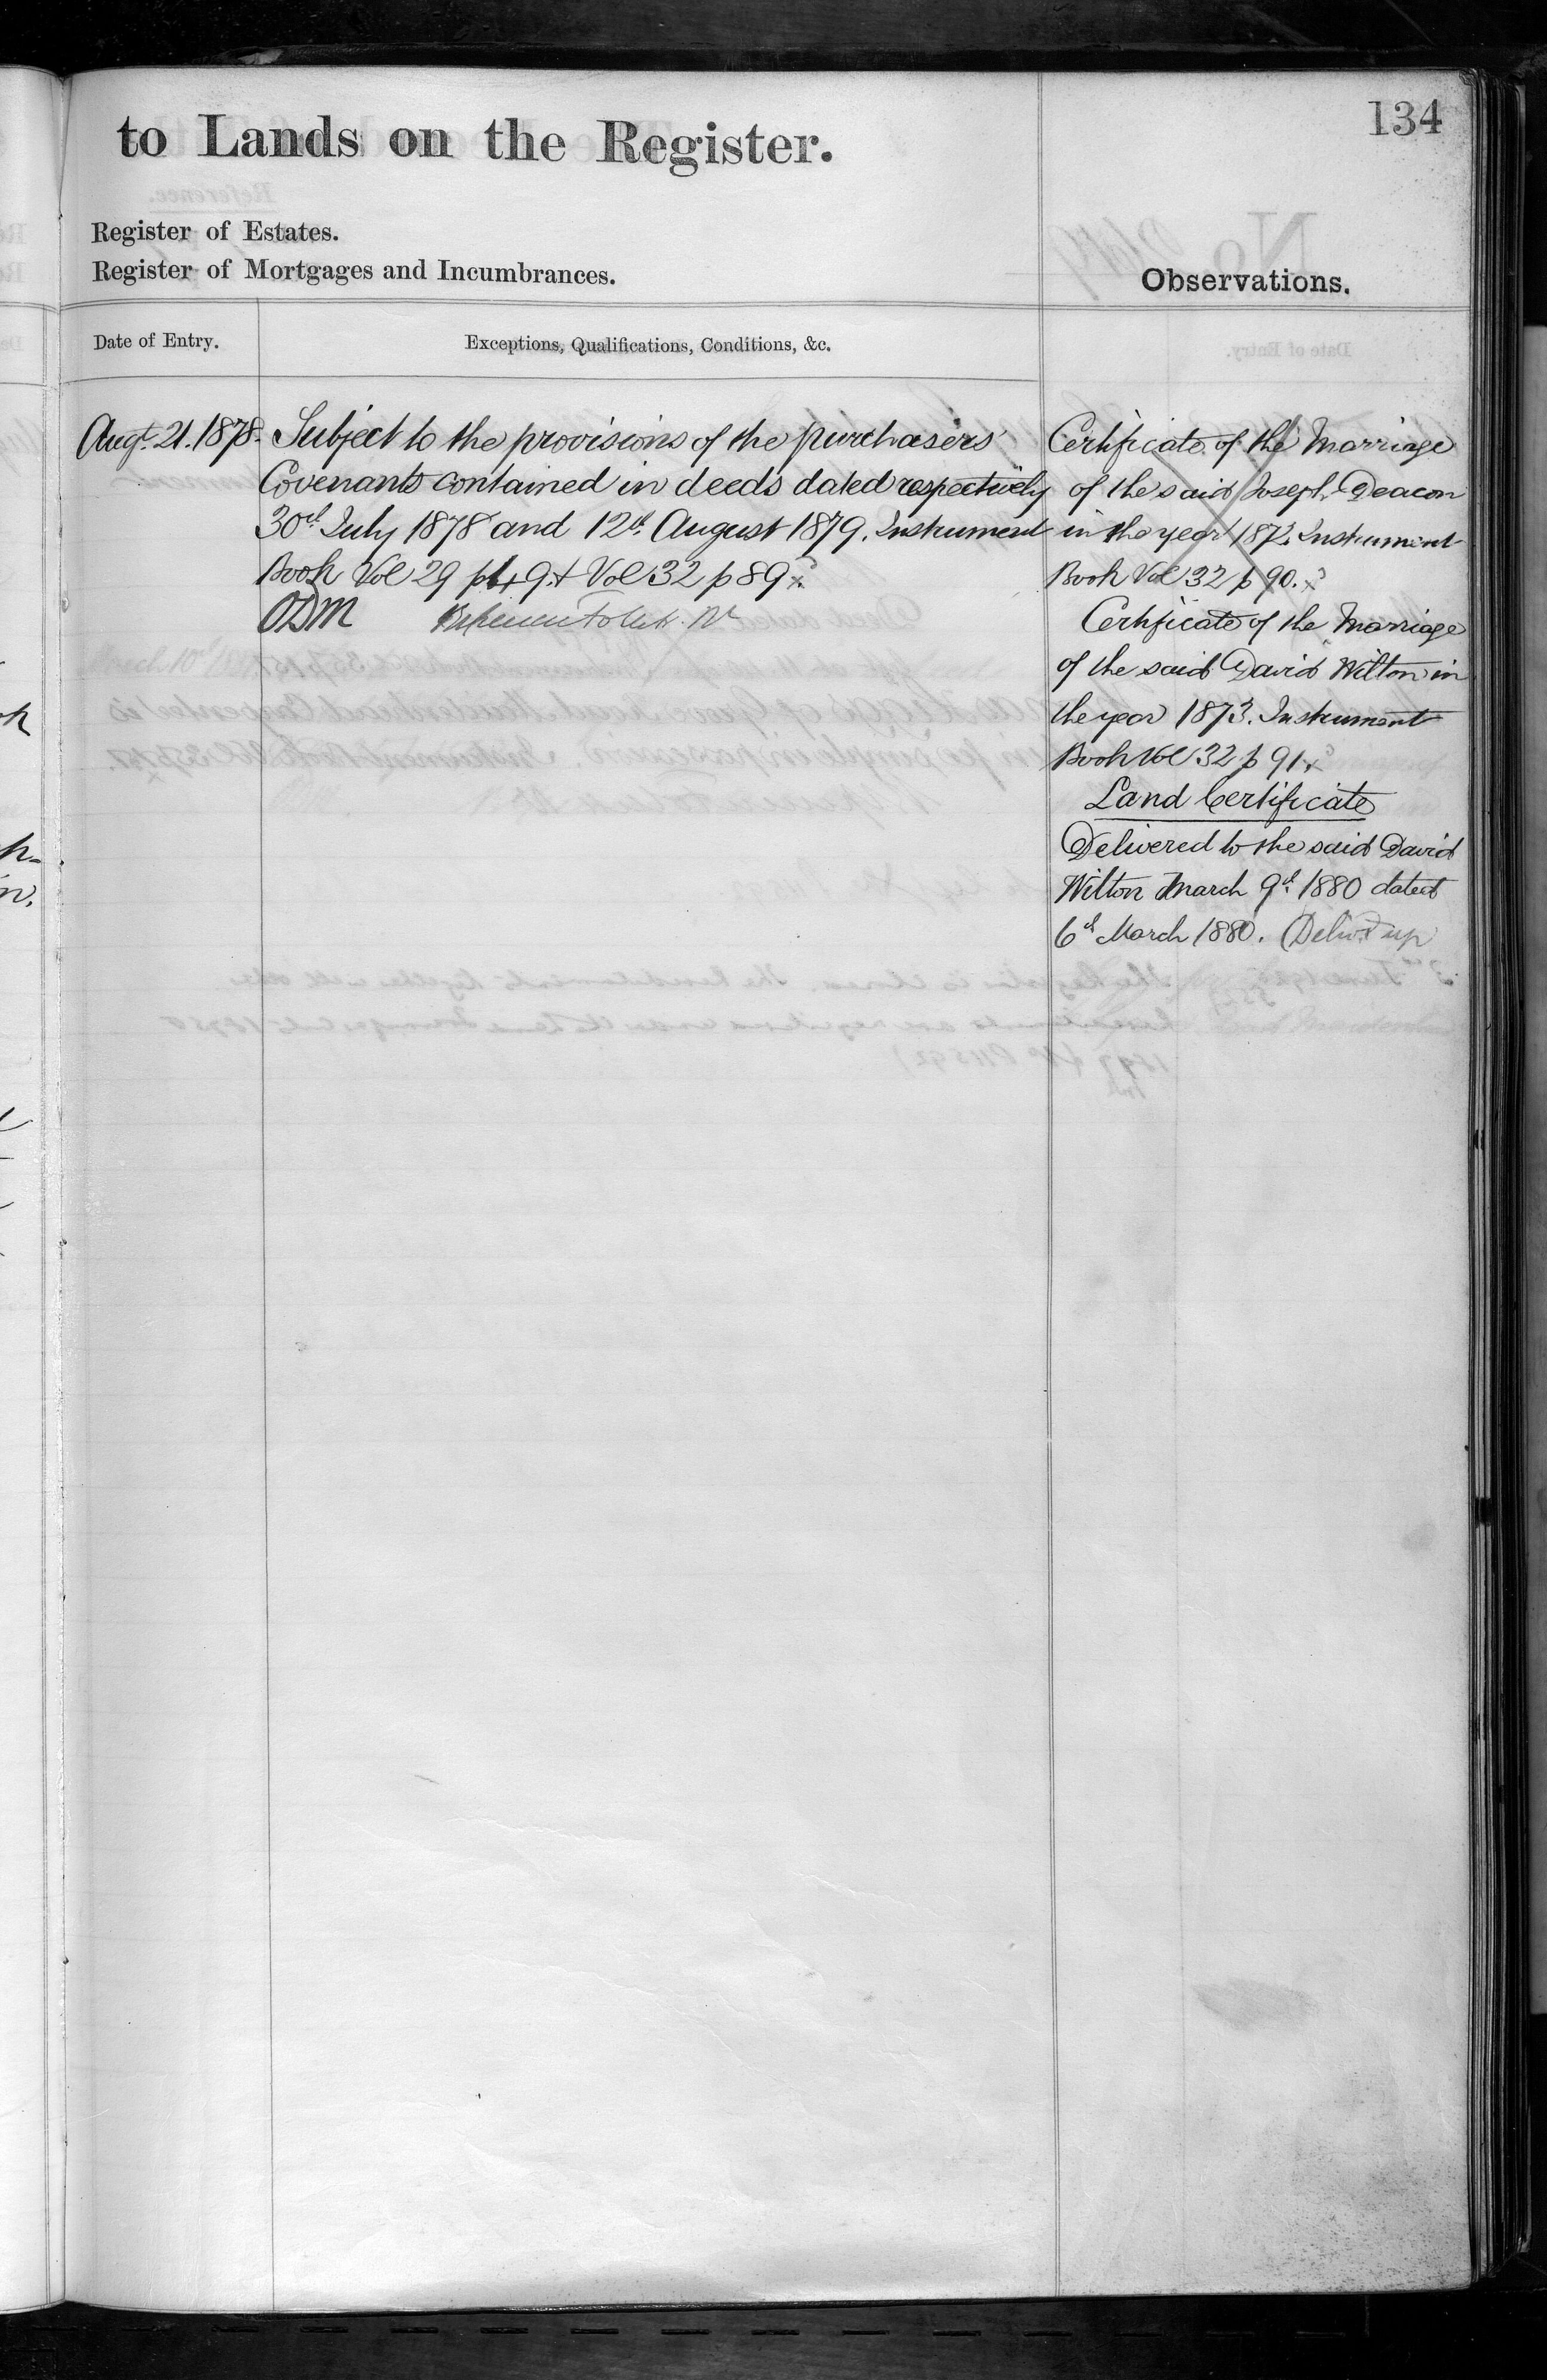 134
to Lands on the Register.
Register of Estates.
Register of Mortgages and Incumbrances.
Observations.
Date of Entry.
Exceptions, Qualifications, Conditions, &c.
Augt. 21. 1878.
Subject to the provisions of the purchasers'
Covenants contained in deeds dated respectively
30th July 1878 and 12th August 1879. Instrument
Book Vol 29 p 49 + Vol 32 p 89
ODM
Certificate of the Marriage
of the said Joseph Deacon
in the year 1872. Instrument
Book Vol 32 p 90.
Certificate of the Marriage
of the said David Wilton in
the year 1873. Instrument
Book Vol 32 p 91.
Land Certificate
Delivered to the said David
Wilton March 9th 1880 dated
6th March 1880. (Delivd up